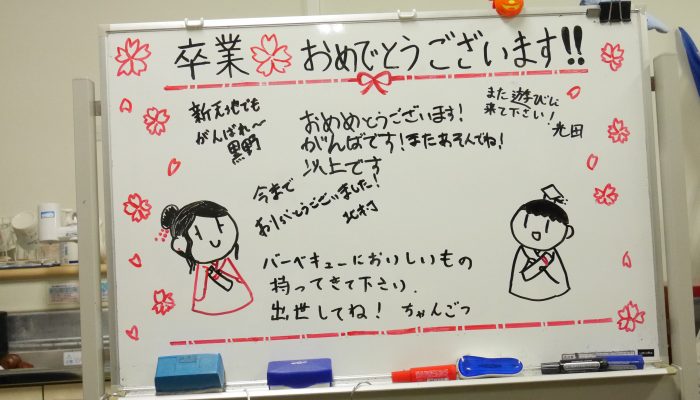 卒業 おめでとうございます!!
新天地でも
がんばれ〜
黒野
おめめとうございます!
がんばです!またあそんでね!
以上です
また遊びに
来て下さい!
光田
今まで
ありがとうございました!
北村
バーベキューにおいしいもの
持ってきて下さい.
出世してね! ちゃんごっ